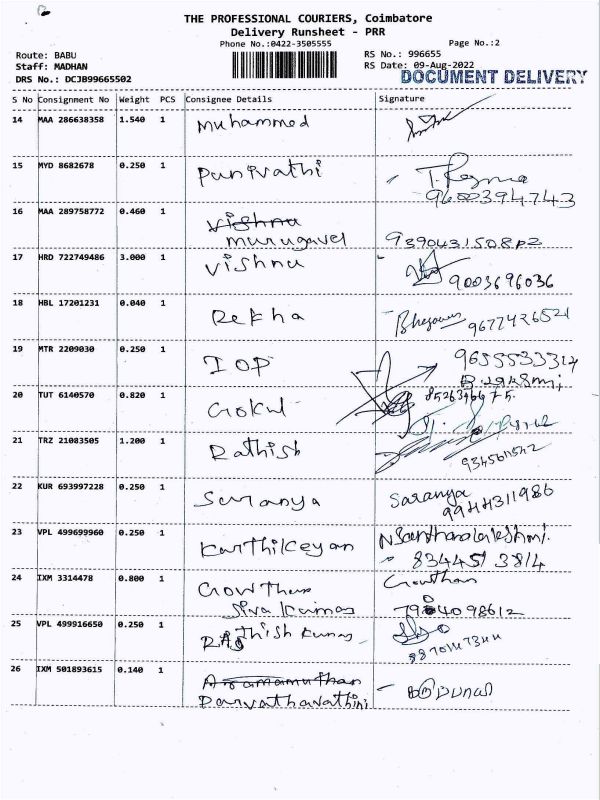 THE PROFESSIONAL COURIERS, Coimbatore
Delivery Runsheet - PRR
Phone No.:0422-3505555 Page No.:2
Route: BABU RS No.: 996655
Staff: MADHAN RS Date: 09-Aug-2022
DRS No.: DCJB99665502 DOCUMENT DELIVERY
S No Consignment No Weight PCS Consignee Details Signature
14 MAA 286638358 1.540 1 Muhammed
15 MYD 8682678 0.250 1 Punivathi
9600394743
16 MAA 289758772 0.460 1 Vishnu
murugavel
17 HRD 722749486 3.000 1 Vishnu 9003696036
18 HBL 17201231 0.040 1 Rekha 9677426521
19 MTR 2209030 0.250 1 IOP
20 TUT 6140570 0.820 1 Gokul
21 TRZ 21083505 1.200 1 Rathish
22 KUR 693997228 0.250 1 Saranya Saranya
9944311986
23 VPL 499699960 0.250 1 Karthikeyan
8344513814
24 IXM 3314478 0.800 1 Gowtham Gowtham
Siva Kumar
25 VPL 499916650 0.250 1 Rathish Kumar
26 IXM 501893615 0.140 1
Parvathavathini